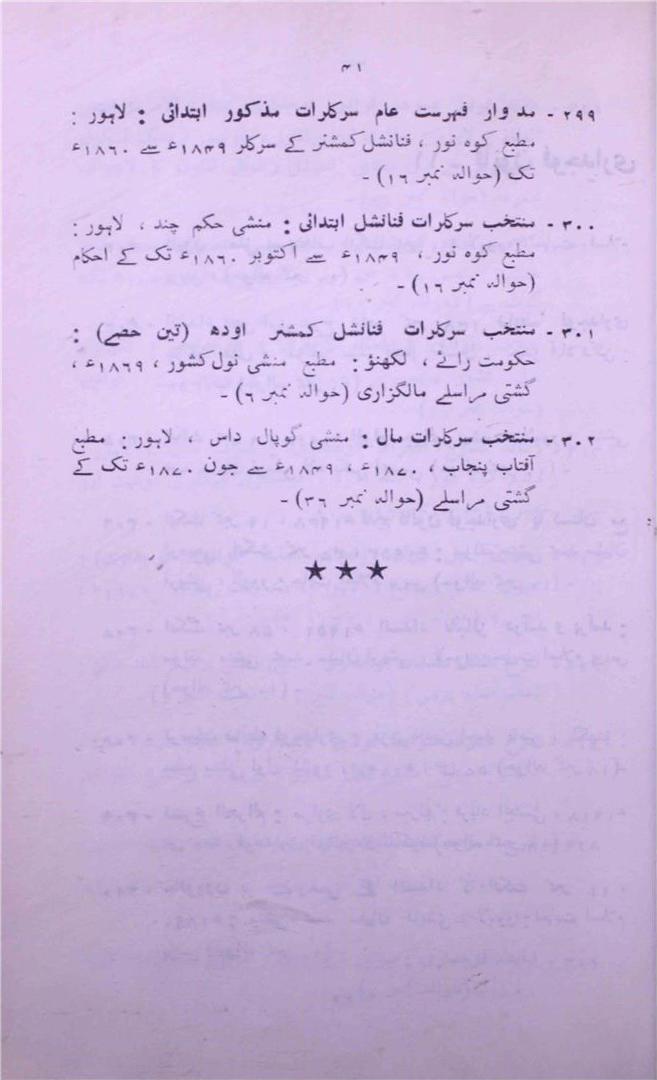 ۴۱
۲۹۹ - مد وار فہرست عام سرکلرات مذکور ابتدائی : لاہور :
مطبع کوہ نور ، فنانشل کمشنر کے سرکلر ۱۸۴۹ء سے ۱۸۶۰ء
تک (حوالہ نمبر ۱۶) -
۳۰۰ - منتخب سرکلرات فنانشل ابتدائی : منشی حکم چند ، لاہور :
مطبع کوہ نور ، ۱۸۴۹ء سے اکتوبر ۱۸۶۰ء تک کے احکام
(حوالہ نمبر ۱۶) -
۳۰۱ - منتخب سرکلرات فنانشل کمشنر اودھ (تین حصے) :
حکومت رائے ، لکھنؤ : مطبع منشی نول کشور ، ۱۸۶۹ء ،
گشتی مراسلے مالگزاری (حوالہ نمبر ۶) -
۳۰۲ - منتخب سرکلرات مال : منشی گوپال داس ، لاہور : مطبع
آفتاب پنجاب ، ۱۸۷۰ء ، ۱۸۴۹ء سے جون ۱۸۷۰ء تک کے
گشتی مراسلے (حوالہ نمبر ۳۶) -